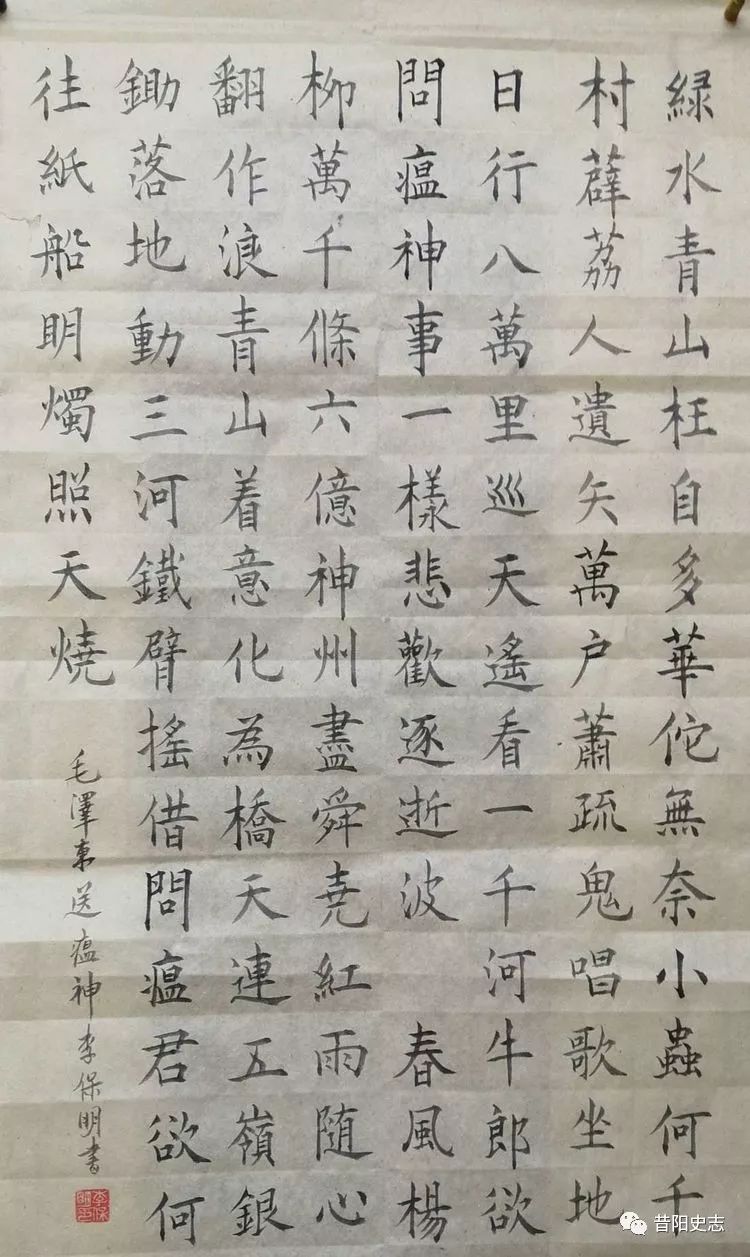 緑水青山枉自多華佗無奈小蟲何千
村薜荔人遺矢萬户蕭疏鬼唱歌坐地
日行八萬里巡天遙看一千河牛郎欲
問瘟神事一樣悲歡逐逝波 春風楊
柳萬千條六億神州盡舜堯紅雨随心
翻作浪青山着意化為橋天連五嶺銀
鋤落地動三河鐵臂搖借問瘟君欲何
往紙船明燭照天燒
毛澤東送瘟神李保明書
昔阳史志